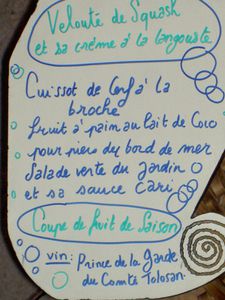 Velouté de Squash
et sa crème à la langouste
Cuissot de Cerf à la
broche
fruit à pain au lait de Coco
pourpiers du bord de mer
Salade verte du jardin
et sa sauce Cari
Coupe de fruit de Saison
vin: Prince de la Garde
du Comté Tolosan.